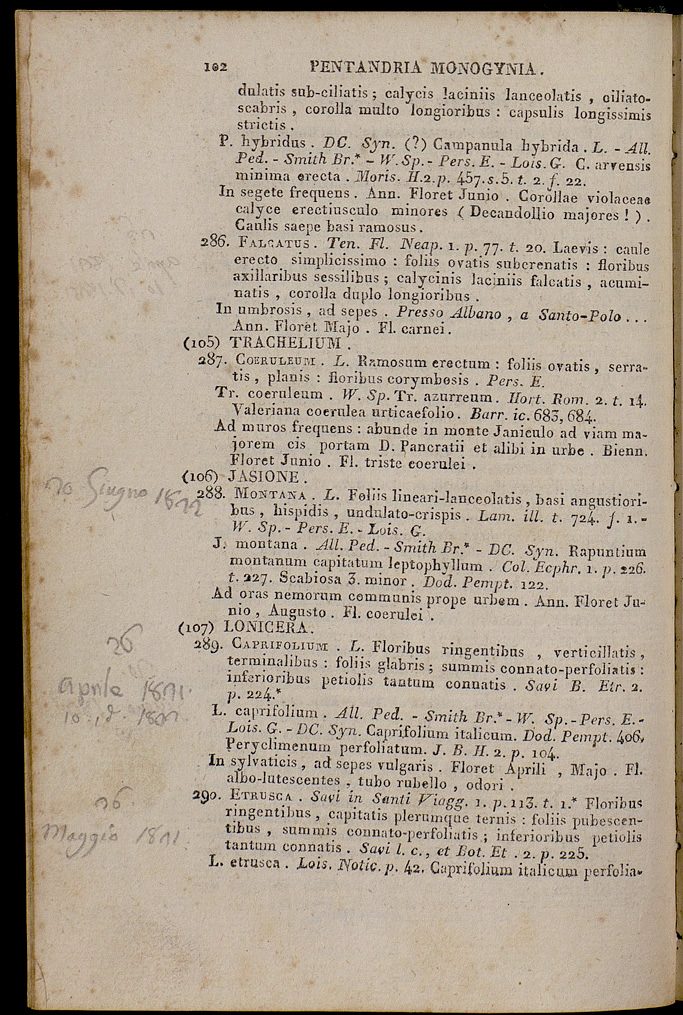 102 PENTANDRIA MONOGYNIA.
dulatis sub-ciliatis ; calycis laciniis lanceolatis , ciliato-
scabris , corolla multo longioribus : capsulis longissimis
strictis .
P. hybridus . DC. Syn. (?) Campanula hybrida . L. - All.
Ped. - Smith Br.* - W. Sp. - Pers. E. - Lois. G. C. arvensis
minima erecta . Moris. H.2.p. 457.s.5.t. 2.f. 22.
In segete frequens . Ann. Floret Junio . Corollae violaceae
calyce erectiusculo minores ( Decandollio majores ! ) .
Caulis saepe basi ramosus .
286. FALCATUS . Ten. Fl. Neap. 1. p. 77. t. 20. Laevis : caule
erecto simplicissimo : foliis ovatis subcrenatis : floribus
axillaribus sessilibus ; calycinis laciniis falcatis , acumi-
natis , corolla duplo longioribus .
In umbrosis , ad sepes . Presso Albano , a Santo-Polo ...
Ann. Floret Majo . Fl. carnei .
(105) TRACHELIUM .
287. COERULEUM . L. Ramosum erectum : foliis ovatis , serra-
tis , planis : floribus corymbosis . Pers. E.
Tr. coeruleum . W. Sp. Tr. azurreum . Hort. Rom. 2. t. 14.
Valeriana coerulea urticaefolio . Barr. ic. 683, 684.
Ad muros frequens : abunde in monte Janiculo ad viam ma-
jorem cis portam D. Pancratii et alibi in urbe . Bienn.
Floret Junio . Fl. triste coerulei .
(106) JASIONE .
20 Giugno 1822
288. MONTANA . L. Foliis lineari-lanceolatis , basi angustiori-
bus , hispidis , undulato-crispis . Lam. ill. t. 724. f. 1. -
W. Sp. - Pers. E. - Lois. G.
J. montana . All. Ped. - Smith Br.* - DC. Syn. Rapuntium
montanum capitatum leptophyllum . Col. Ecphr. 1. p. 226.
t. 227. Scabiosa 3. minor . Dod. Pempt. 122.
Ad oras nemorum communis prope urbem . Ann. Floret Ju-
nio , Augusto . Fl. coerulei .
(107) LONICERA .
26
aprile 1821
289. CAPRIFOLIUM . L. Floribus ringentibus , verticillatis ,
terminalibus : foliis glabris ; summis connato-perfoliatis :
inferioribus petiolis tantum connatis . Savi B. Etr. 2.
p. 224.*
L. caprifolium . All. Ped. - Smith Br.* - W. Sp. - Pers. E. -
Lois. G. - DC. Syn. Caprifolium italicum . Dod. Pempt. 406.
Peryclimenum perfoliatum . J. B. H. 2. p. 104.
In sylvaticis , ad sepes vulgaris . Floret Aprili , Majo . Fl.
albo-lutescentes , tubo rubello , odori .
26
Maggio 1821
290. ETRUSCA . Savi in Santi Viagg. 1. p.113. t. 1.* Floribus
ringentibus , capitatis plerumque ternis : foliis pubescen-
tibus , summis connato-perfoliatis ; inferioribus petiolis
tantum connatis . Savi l. c. , et Bot. Et . 2. p. 225.
L. etrusca . Lois. Notic. p. 42. Caprifolium italicum perfolia-